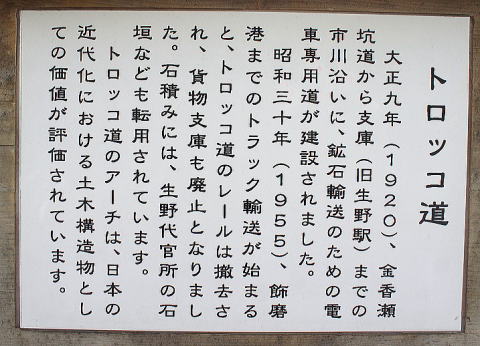 トロッコ道
大正九年（1920）、金香瀬
坑道から支庫（旧生野駅）までの
市川沿いに、鉱石輸送のための電
車専用道が建設されました。
昭和三十年（1955）、飾磨
港までのトラック輸送が始まる
と、トロッコ道のレールは撤去さ
れ、貨物支庫も廃止となりまし
た。石積みには、生野代官所の石
垣なども転用されています。
トロッコ道のアーチは、日本の
近代化における土木構造物とし
ての価値が評価されています。